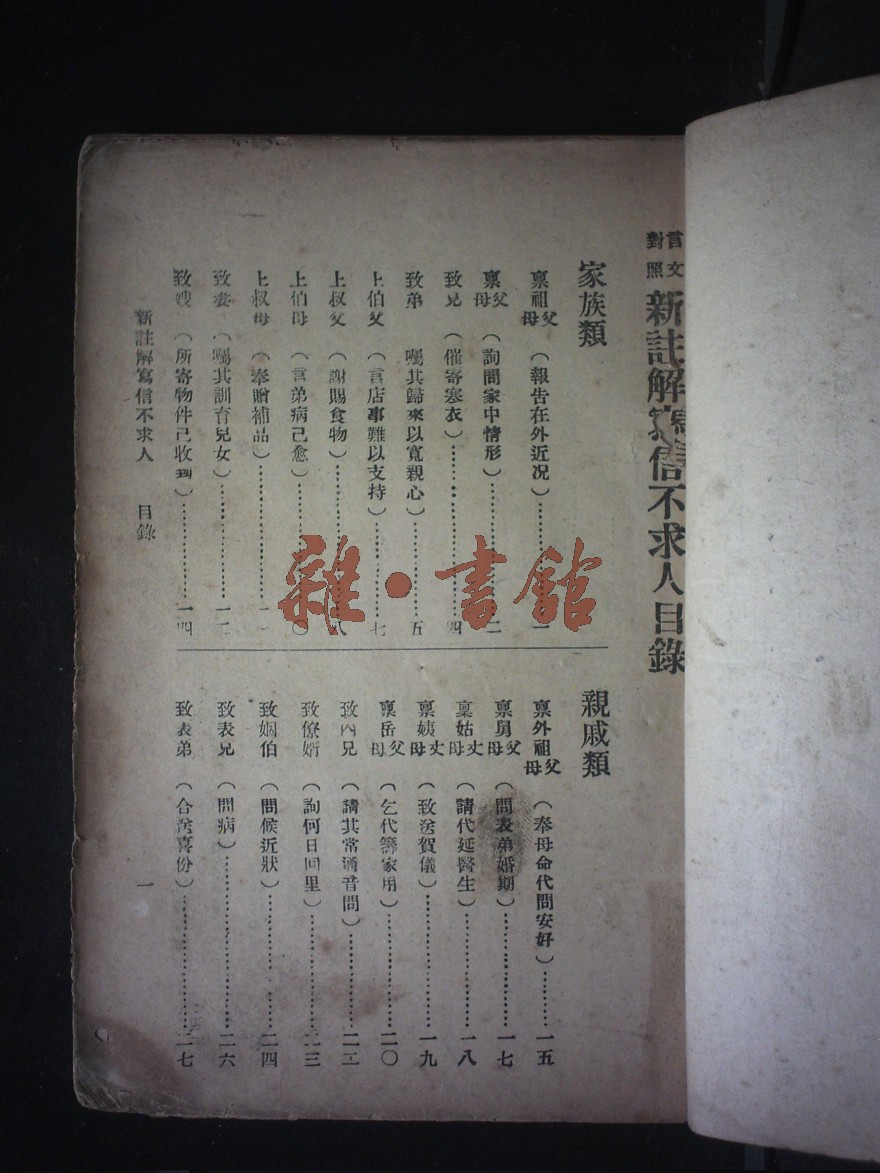 言文對照
新註解寫信不求人目錄
家族類
稟祖父母（報告在外近况）…………一
稟父母（詢問家中情形）…………二
致兄（催寄寒衣）…………四
致弟 囑其歸來以寬親心）…………五
上伯父（言店事難以支持）…………七
上叔父（謝賜食物）…………八
上伯母（言弟病已愈）…………〇
上叔母（奉贈補品）…………
致妻（囑其訓育兒女）…………一二
致嫂（所寄物件已收到）…………一四
親戚類
稟外祖父母（奉母命代問安好）…………一五
稟舅父母（問表弟婚期）…………一七
稟姑丈母（請代延醫生）…………一八
稟姨丈母（致送賀儀）…………一九
稟岳父母（乞代籌家用）…………二〇
致內兄（請其常通音問）…………二二
致僚婿（詢何日回里）…………二三
致姻伯（問候近狀）…………二四
致表兄（問病）…………二六
致表弟（合送喜份）…………二七
新註解寫信不求人 目錄 一
雜·書館